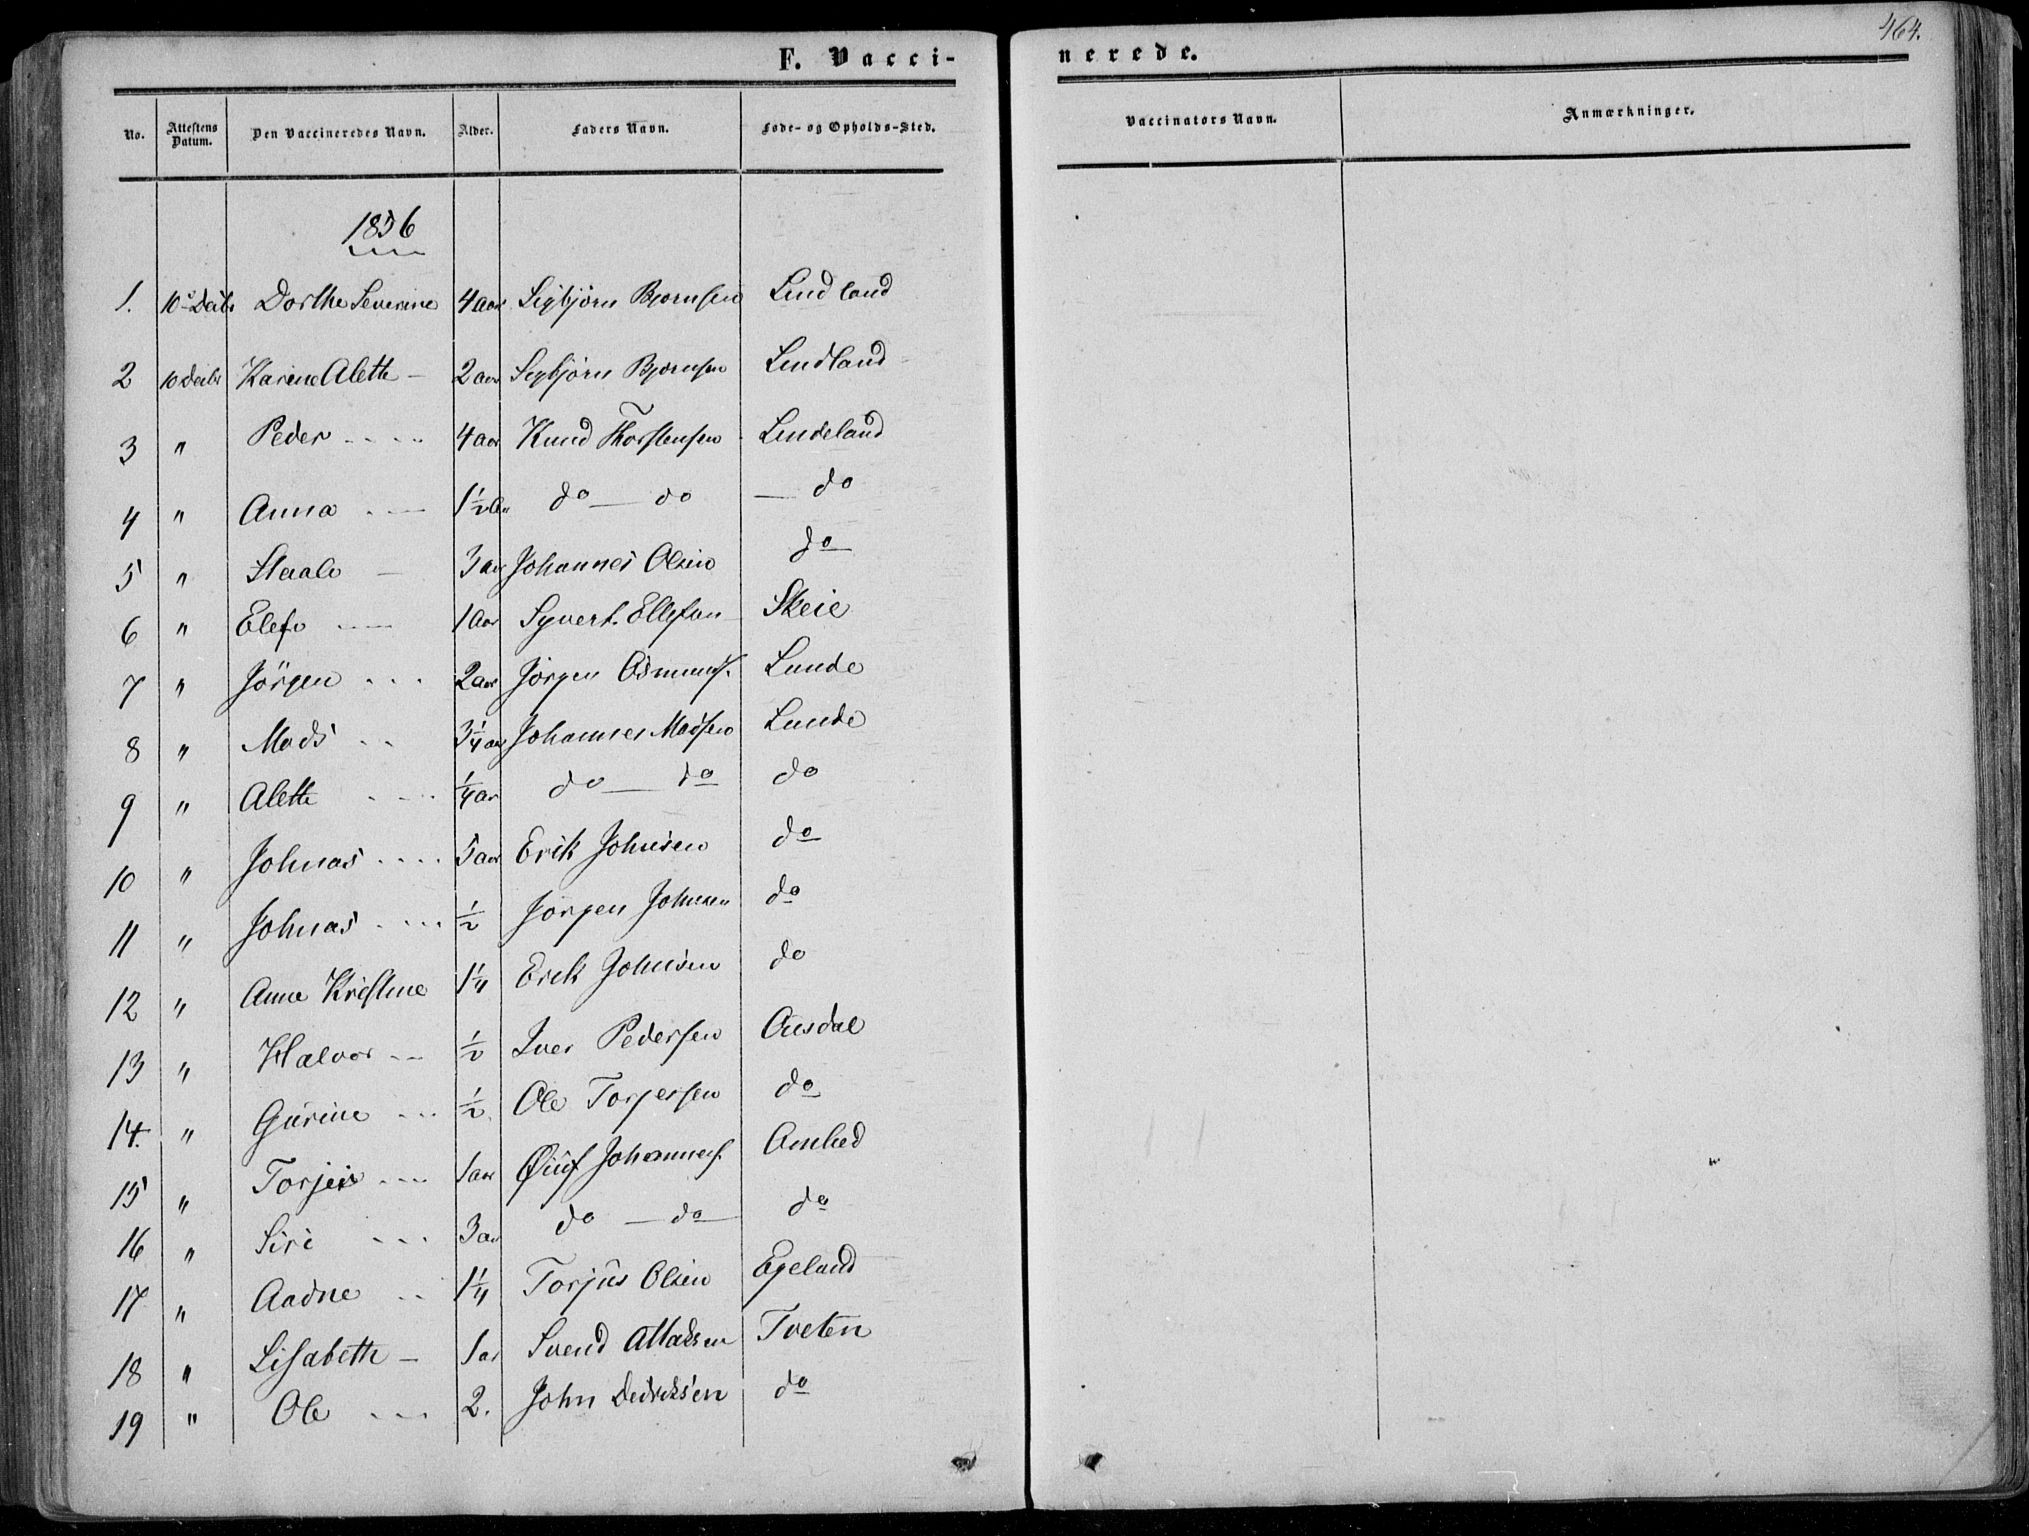 464.
F. Vaccinerede.
No. Attestens Datum. Den Vaccineredes Navn. Alder. Faders Navn. Føde- og Opholds-Sted. Vaccinators Navn. Anmærkninger.
1856
1. 10 Decbr Dorthe Severine 4 aar Sigbjørn Bjørnsen Lindland
2 10 Decbr Karine Aleth – 2 aar Sigbjørn Bjørnsen Lindland
3 " Peder 4 aar Knud Thorstensen Lindeland
4 " Anna 1½ do — do — do
5 " Staale – 3 aar Johannes Olsen do
6 " Elef 1 aar Syvert Ellefsen Skeie
7 " Jörgen 2 aar Jörgen Osmunds. Lunde
8 " Mads 3¼ aar Johannes Madsen Lunde
9 " Aleth ¼ ar do — do do
10 " Johnas 5 aar Erik Johnsen do
11 " Johnas ½ Jörgen Johnsen do
12 " Anne Kristine 1¼ Erik Johnsen do
13 " Halvor ½ Iver Pedersen Ousdal
14. " Gurine ½ Ole Torjersen do
15 " Torjer 1 aar Johannes.
16 " Siri 3 aar do — do do
17 " Aadne 1¼ Torjus Olsen Egeland
18 " Lisabeth – 1 ar Svend Tveten
19 " Ole 2. John Dedricksen do